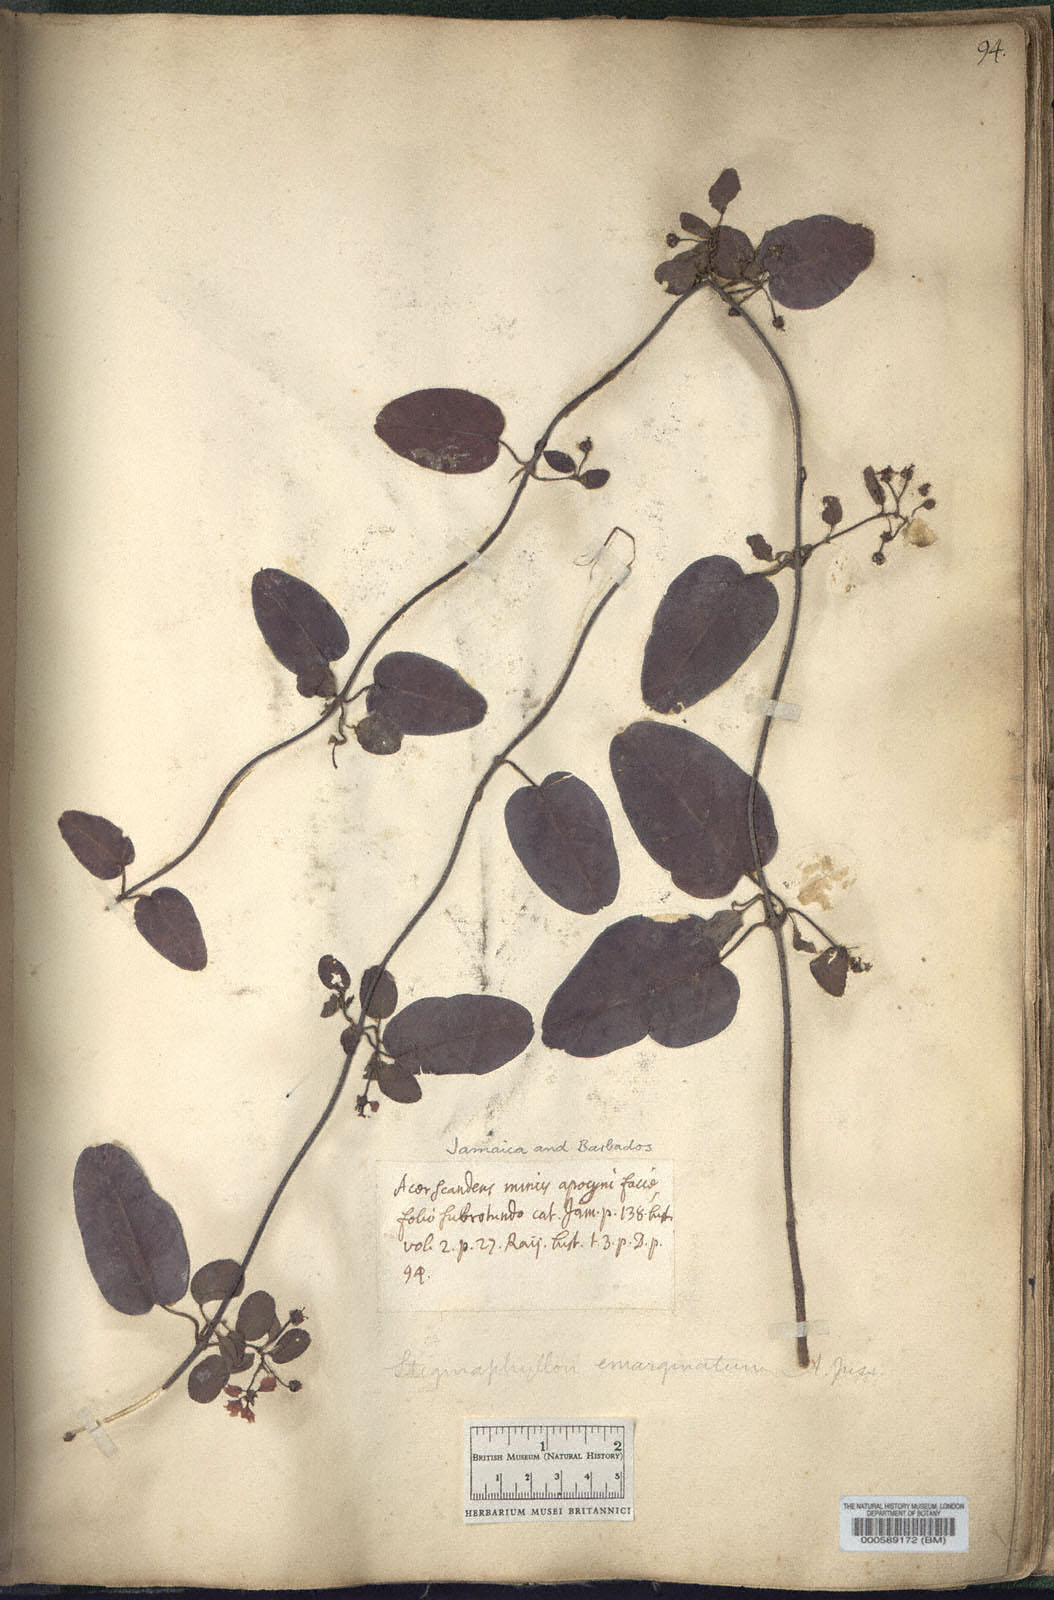 94.
Jamaica and Barbados
Acer scandens minus apocyni facie
folio subrotundo cat. Jam. p. 138. hist.
vol. 2. p. 27. Raij. hist. t. 3. p. D. p.
94.
Stigmaphyllon emarginatum A. Juss.
1 2
British Museum (Natural History)
1 2 3 4 5
HERBARIUM MUSEI BRITANNICI
THE NATURAL HISTORY MUSEUM, LONDON
DEPARTMENT OF BOTANY
000589172 (BM)